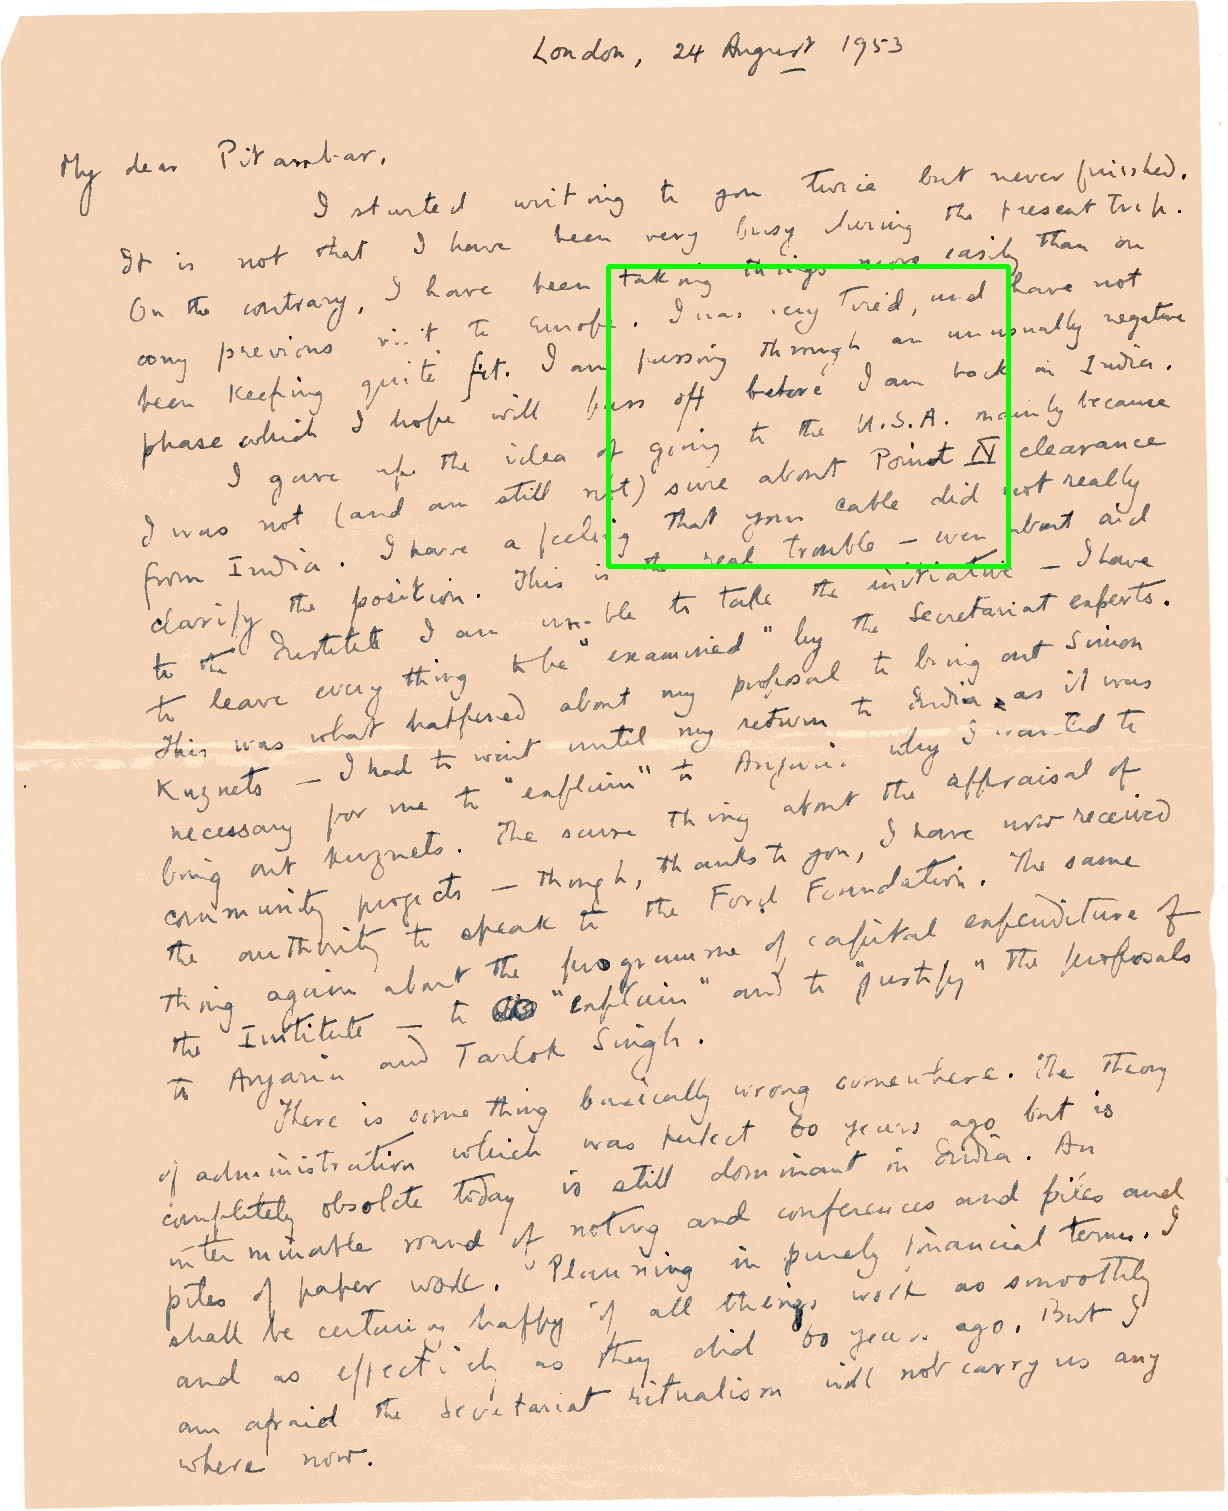 London, 24 August 1953
My dear Pitambar,
I started writing to you twice but never finished.
It is not that I have been very busy during the present trip.
On the contrary, I have been taking things more easily than on
any previous visit to Europe. I was very tired, and have not
been keeping quite fit. I am passing through an unusually negative
phase which I hope will pass off before I am back in India.
I gave up the idea of going to the U.S.A. mainly because
I was not (and am still not) sure about Point IV clearance
from India. I have a feeling that your cable did not really
clarify the position. This is the real trouble - even about aid
to the Institute I am unable to take the initiative - I have
to leave every thing to be "examined" by the Secretariat experts.
This was what happened about my proposal to bring out Simon
Kuznets - I had to wait until my return to India as it was
necessary for me to "explain" to Anjaria why I wanted to
bring out Kuznets. The same thing about the appraisal of
community projects - though, thanks to you, I have now received
the authority to speak to the Ford Foundation. The same
thing again about the programme of capital expenditure of
the Institute - to "explain" and to "justify" the proposals
to Anjaria and Tarlok Singh.
There is some thing basically wrong somewhere. The theory
of administration which was perfect 60 years ago but is
completely obsolete today is still dominant in India. An
interminable round of noting and conferences and files and
piles of paper work. Planning in purely financial terms. I
shall be certainly happy if all things work as smoothly
and as effectively as they did 60 years ago. But I
am afraid the Secretariat ritualism will not carry us any
where now.